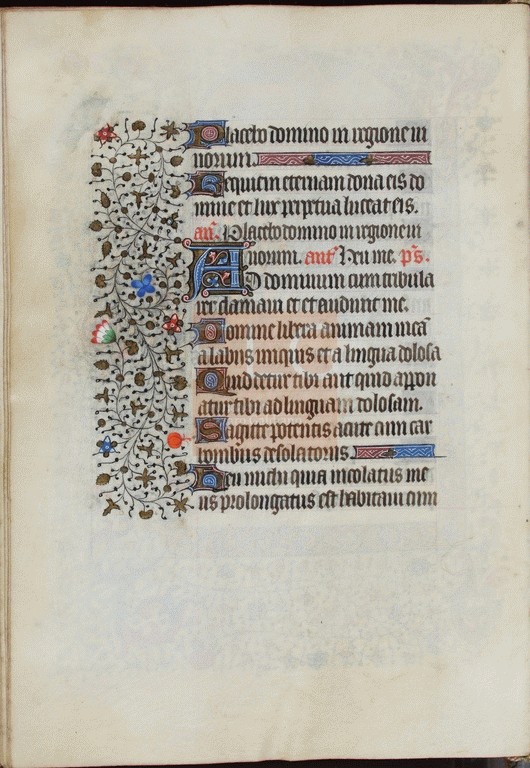 Placebo domino in regione vi
uorum.
Requiem eternam dona eis do
mine et lux perpetua luceat eis.
añ. Placebo domino in regione vi
uorum. ant̄ Heu me. ps̄.
AD dominum cum tribula
rer clamaui et exaudiuit me.
Domine libera animam meā
a labiis iniquis et a lingua dolosa
Quid detur tibi aut quid appon
atur tibi ad linguam dolosam.
Sagitte potentis acute cum car
bonibus desolatoriis.
Heu michi quia incolatus me
us prolongatus est habitaui cum